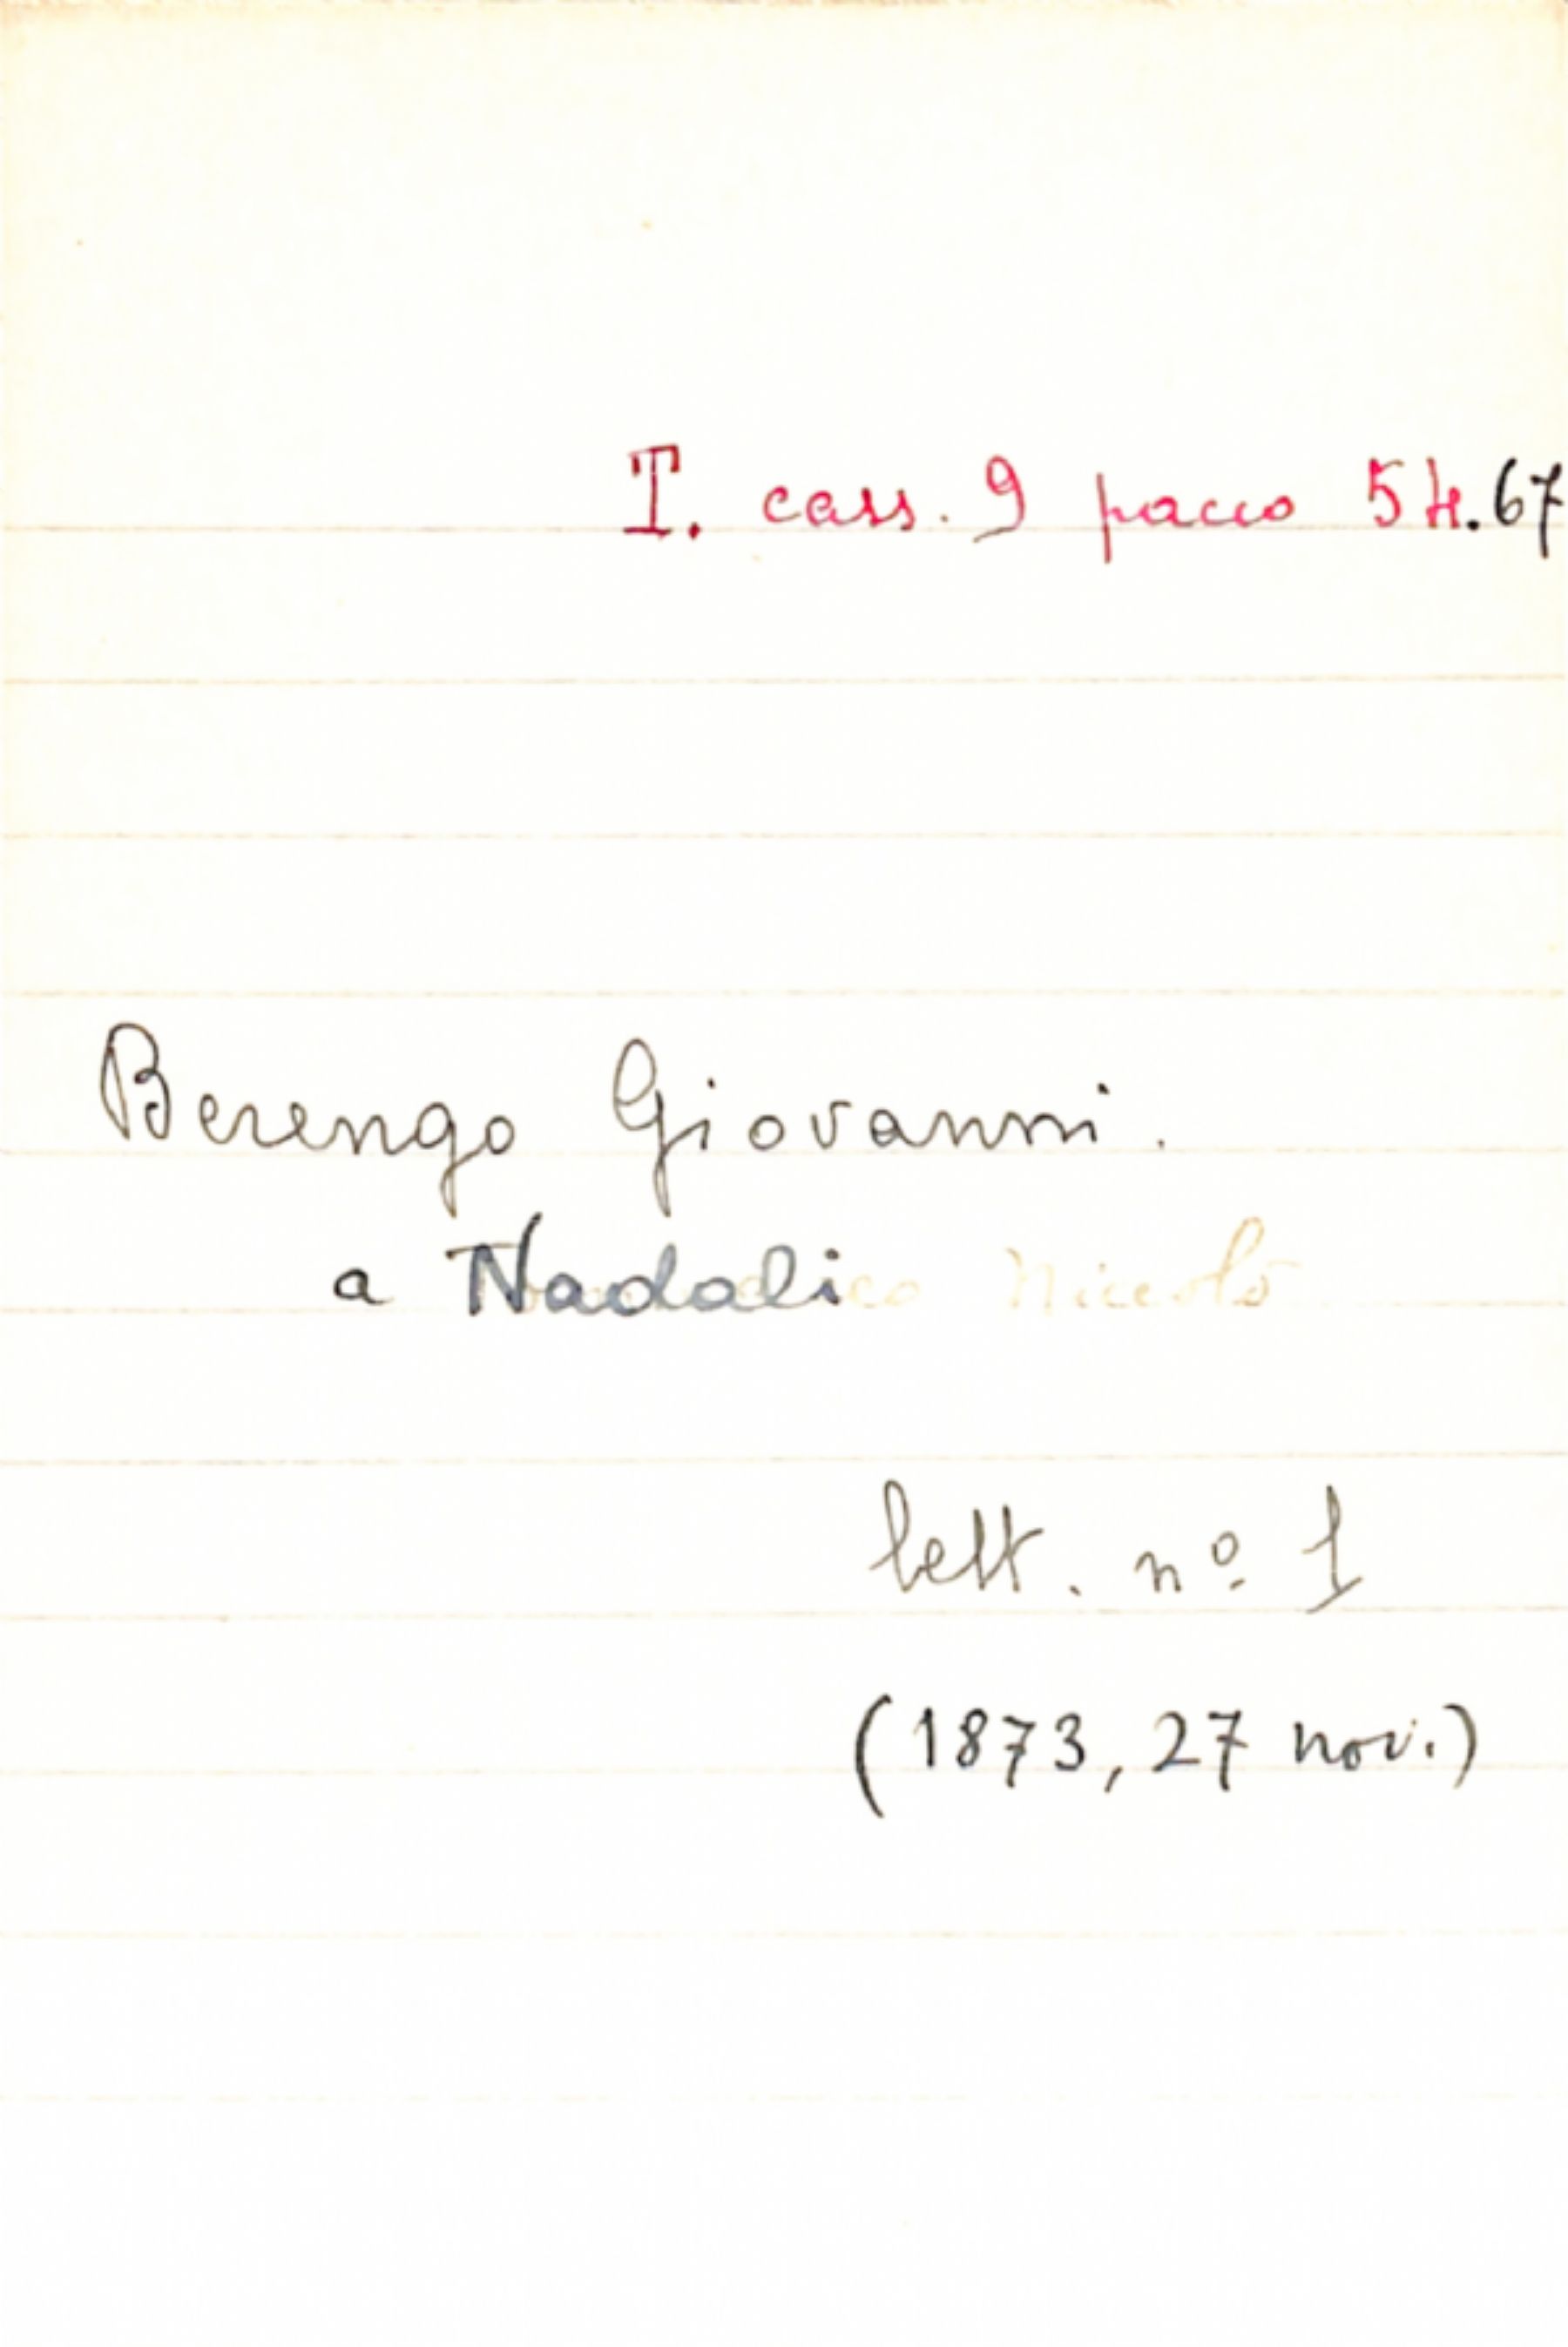 T. cass. 9 pacco 54.67
Berengo Giovanni.
a Nadali
lett. nº 1
(1873, 27 nov.)